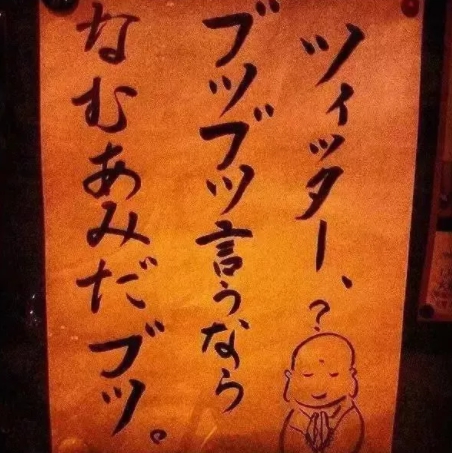 ツイッター、
ブツブツ言うなら
なむあみだブツ。
?